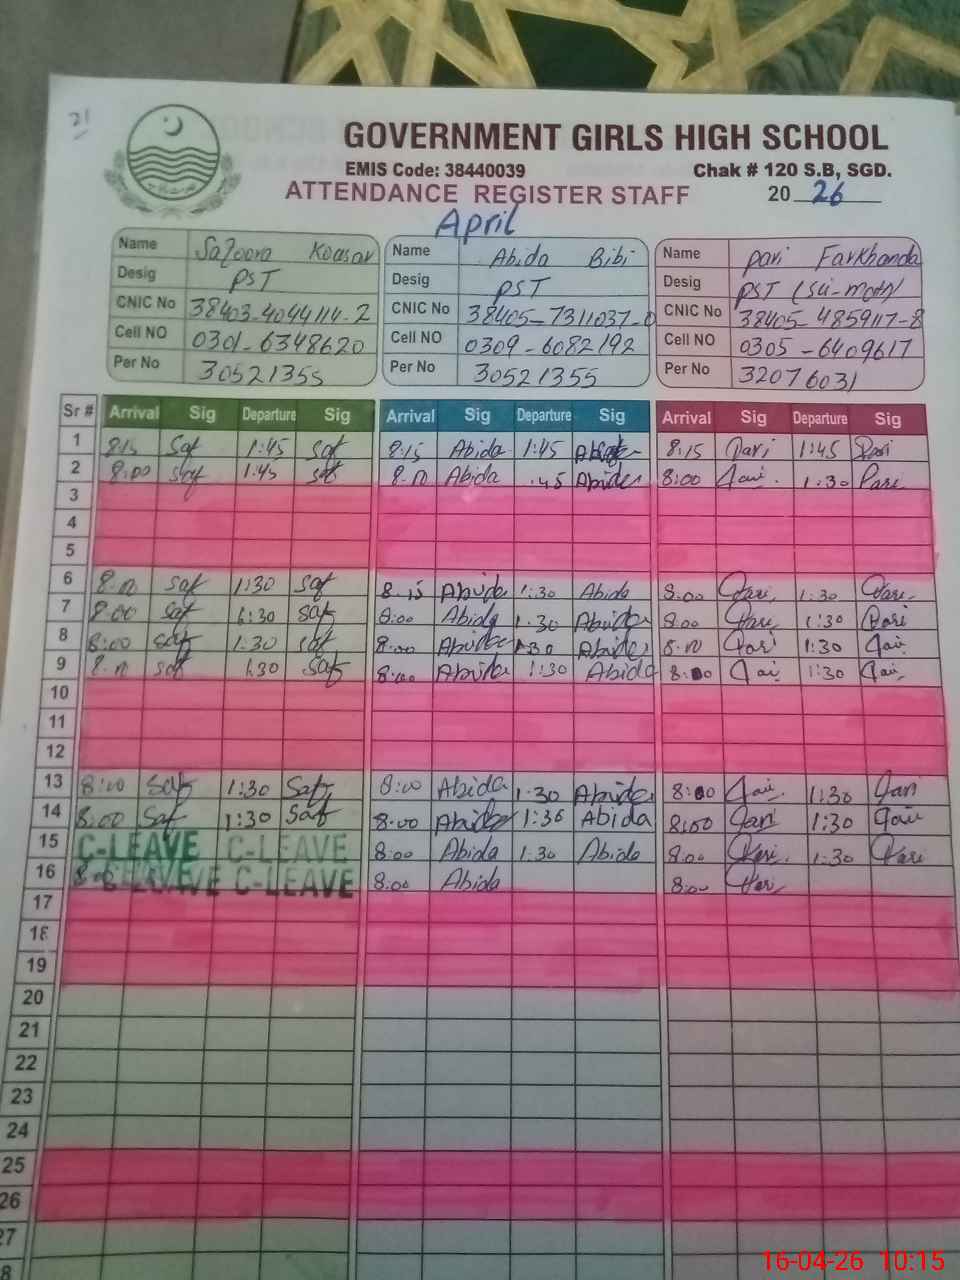 21
GOVERNMENT GIRLS HIGH SCHOOL
EMIS Code: 38440039 Chak # 120 S.B, SGD.
ATTENDANCE REGISTER STAFF 2026
April
Name Kousar Name Abida Bibi Name Pari Farkhanda
Desig PST Desig PST Desig PST
CNIC No 38403-4044114-2 CNIC No 38405-7311037-0 CNIC No 38405-4859117-8
Cell NO 0301-6348620 Cell NO 0309-6082192 Cell NO 0305-6409617
Per No 30521355 Per No 30521355 Per No 32076031
Sr # Arrival Sig Departure Sig Arrival Sig Departure Sig Arrival Sig Departure Sig
1 8:15 Saf 1:45 Saf 8:15 Abida 1:45 8:15 Pari 1:45 Pari
2 8:00 Saf 1:45 Saf 8:00 Abida :45 Abida 8:00 Pari 1:30 Pari
3
4
5
6 8:00 Saf 1:30 Saf 8:15 Abida 1:30 Abida 8:00 Pari 1:30 Pari
7 8:00 Saf 1:30 Saf 8:00 Abida 1:30 Abida 8:00 Pari 1:30 Pari
8 8:00 Saf 1:30 Saf 8:00 Abida 1:30 Abida 8:00 Pari 1:30 Pari
9 8:00 Saf 1:30 Saf 8:00 Abida 1:30 Abida 8:00 Pari 1:30 Pari
10
11
12
13 8:00 Saf 1:30 Saf 8:00 Abida 1:30 Abida 8:00 Pari 1:30 Pari
14 8:00 Saf 1:30 Saf 8:00 Abida 1:30 Abida 8:00 Pari 1:30 Pari
15 C-LEAVE C-LEAVE 8:00 Abida 1:30 Abida 8:00 Pari 1:30 Pari
16 8:00 C-LEAVE C-LEAVE 8:00 Abida 8:00 Pari
17
18
19
20
21
22
23
24
25
26
27
8
16-04-26 10:15